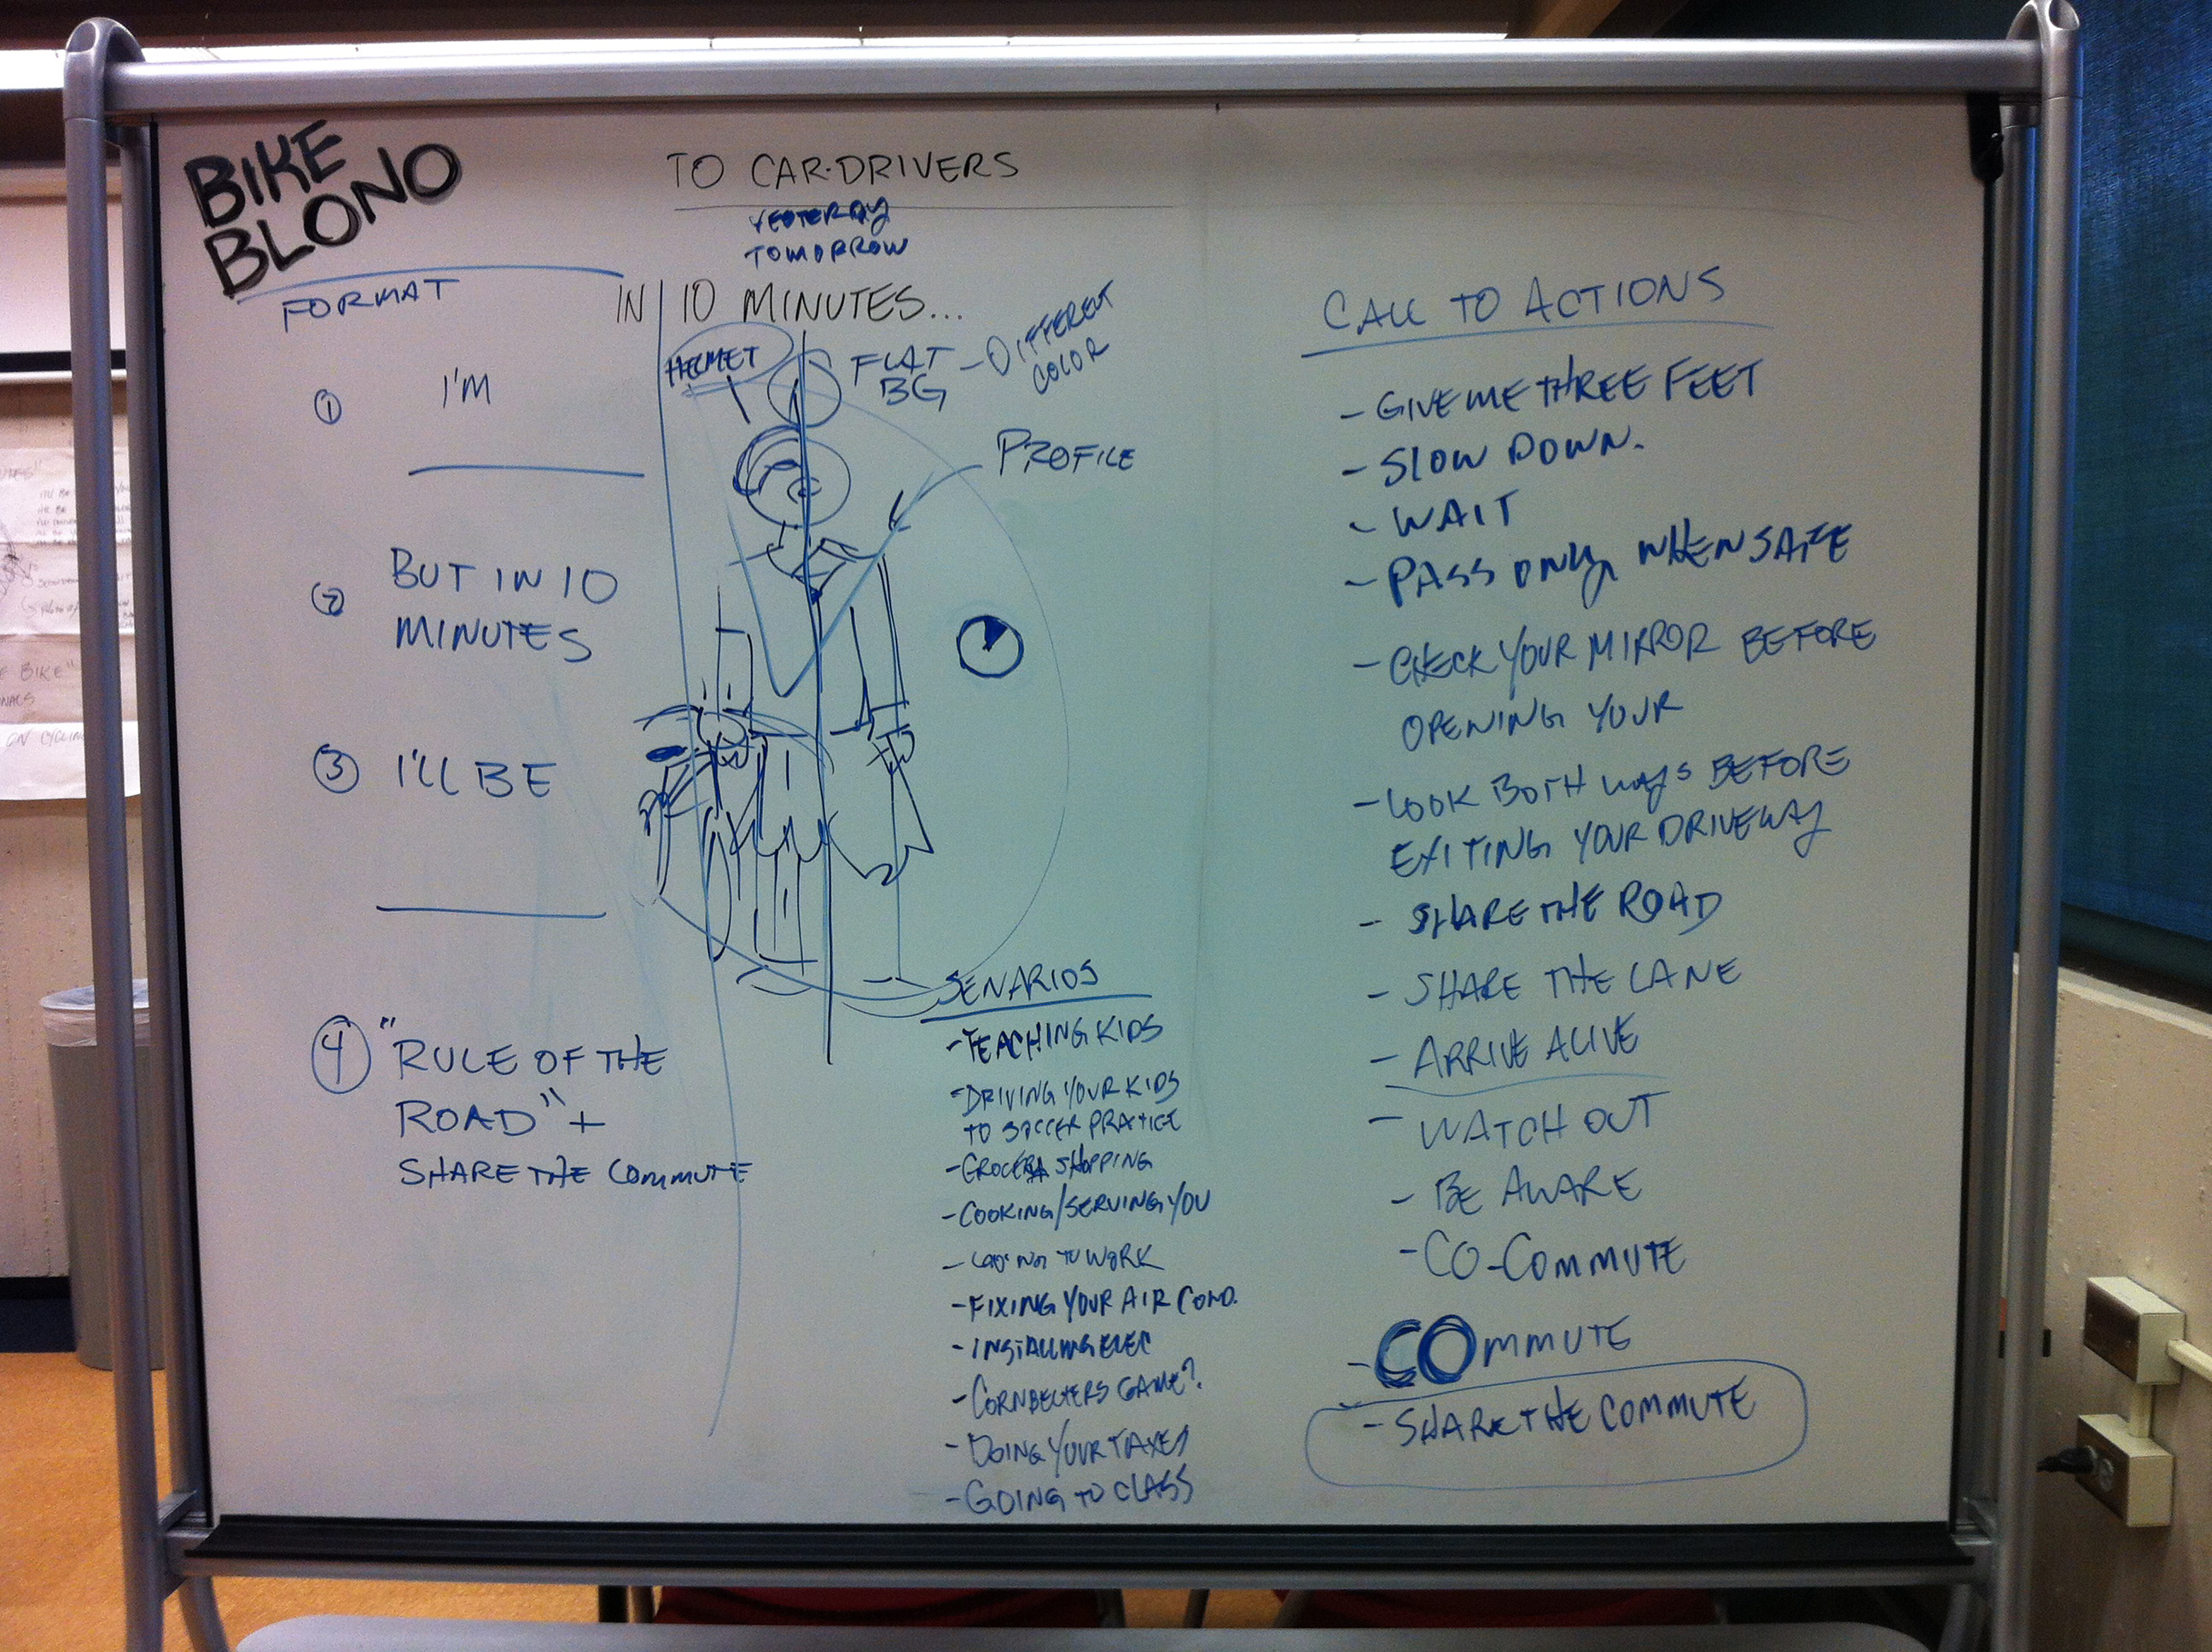 BIKE
BLONO
TO CAR-DRIVERS
YESTERDAY
TOMORROW
IN 10 MINUTES...
HELMET
FLAT
BG
- DIFFERENT
COLOR
PROFILE
FORMAT
① I'M
② BUT IN 10
MINUTES
③ I'LL BE
④ "RULE OF THE
ROAD" +
SHARE THE COMMUTE
SENARIOS
- TEACHING KIDS
- DRIVING YOUR KIDS
TO SOCCER PRACTICE
- GROCERY SHOPPING
- COOKING/SERVING YOU
- GOING TO WORK
- FIXING YOUR AIR COND.
- INSTALLING ELEC
- CORNBELTERS GAME?
- DOING YOUR TAXES
- GOING TO CLASS
CALL TO ACTIONS
- GIVE ME THREE FEET
- SLOW DOWN.
- WAIT
- PASS ONLY WHEN SAFE
- CHECK YOUR MIRROR BEFORE
OPENING YOUR
- LOOK BOTH WAYS BEFORE
EXITING YOUR DRIVEWAY
- SHARE THE ROAD
- SHARE THE LANE
- ARRIVE ALIVE
- WATCH OUT
- BE AWARE
- CO-COMMUTE
- COMMUTE
- SHARE THE COMMUTE